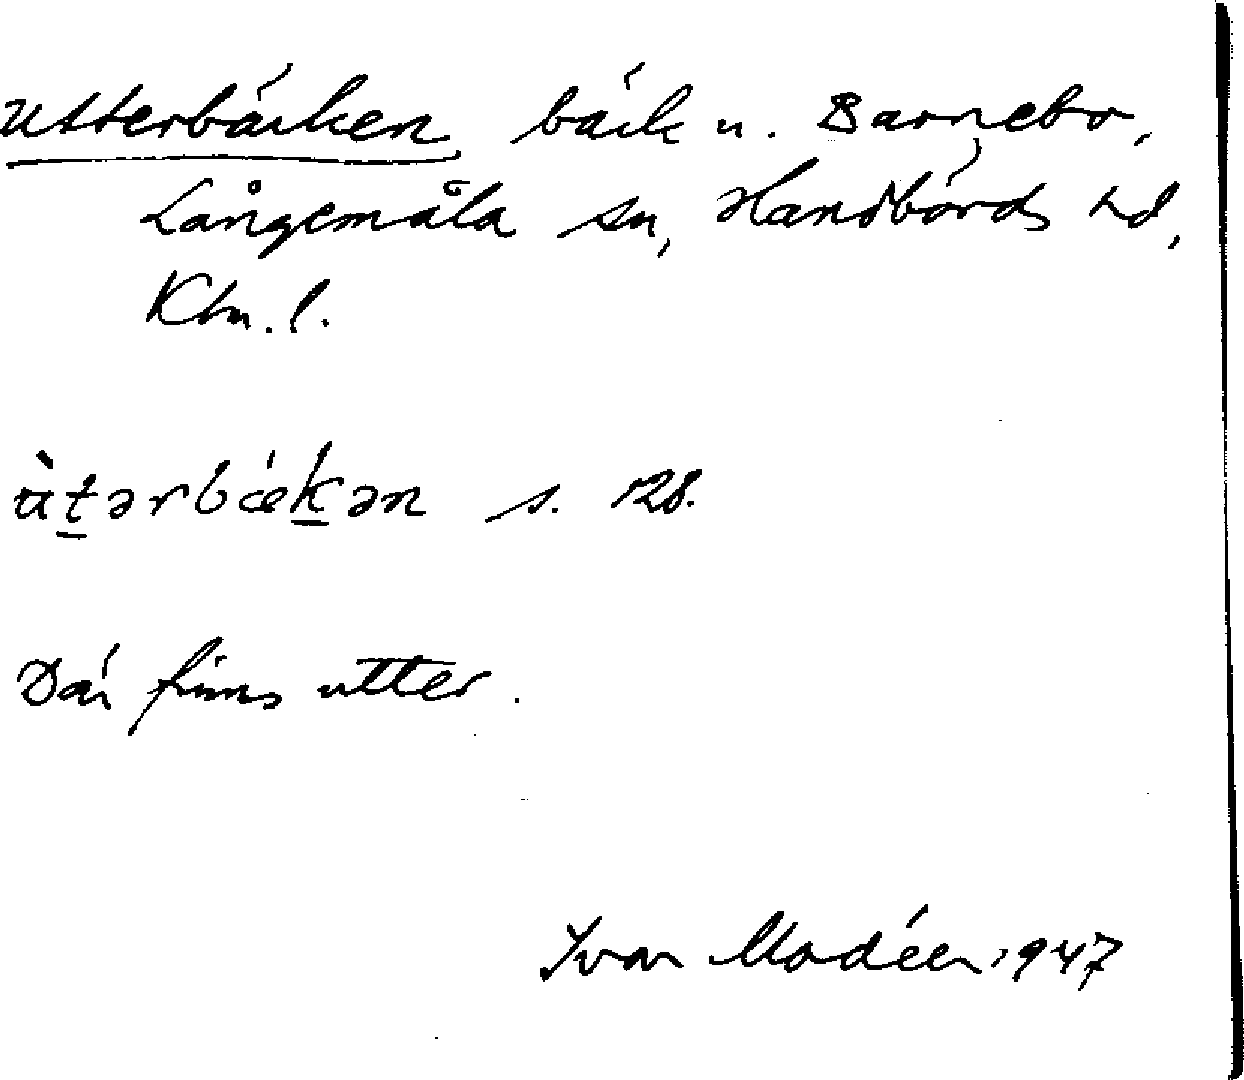 Utterbäcken, bäck u. Barnebo,
Långemåla sn, Handbörds hd,
Klm. l.
ùt̠ərbǽk̠ən s. 128.
Där finns utter.
Ivar Modéer 1947